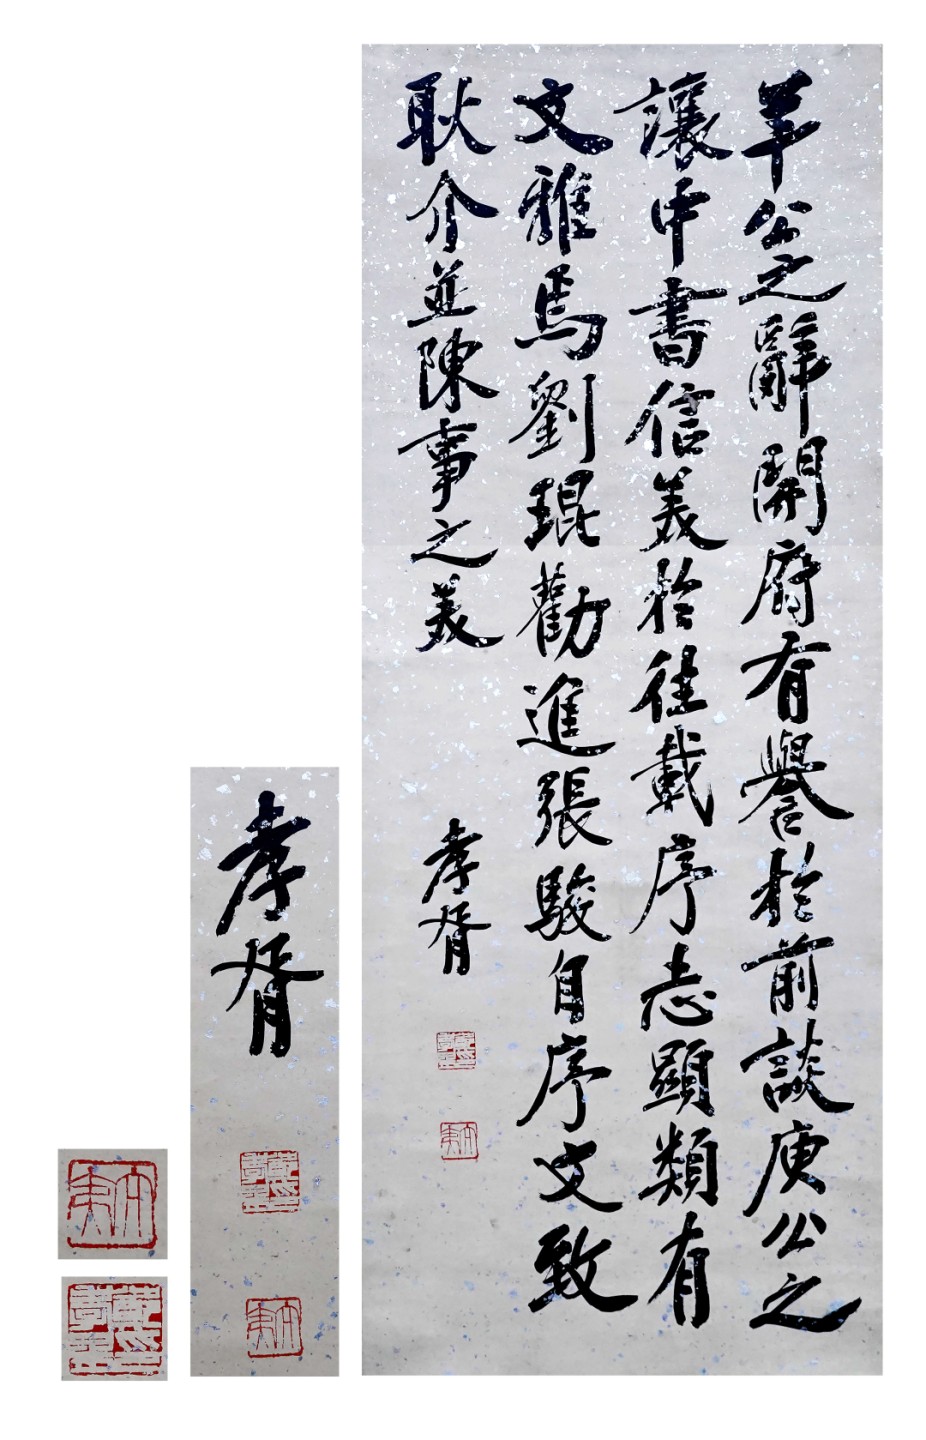 羊公之辭開府有譽於前談庾公之
讓中書信美於往載序志顯類有
文雅焉劉琨勸進張駿自序文致
耿介並陳事之美
孝胥
太夷
孝胥
太夷
太夷